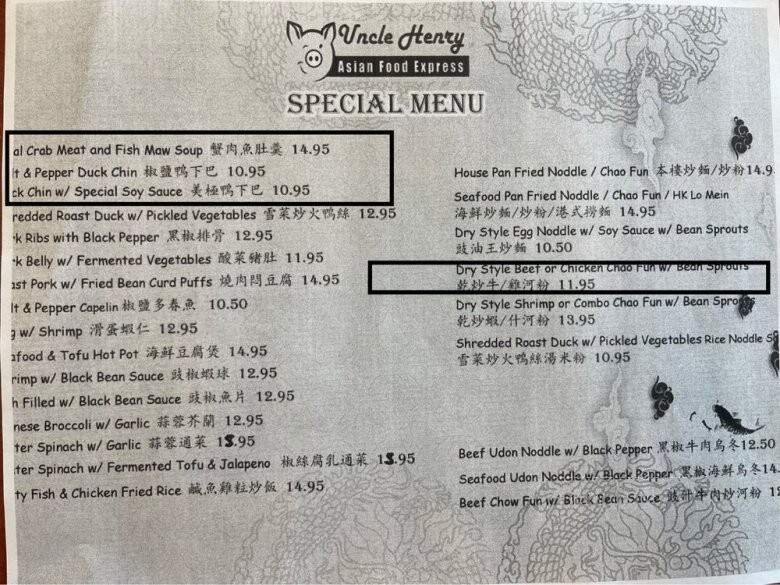 Uncle Henry
Asian Food Express
SPECIAL MENU
al Crab Meat and Fish Maw Soup 蟹肉魚肚羹 14.95
lt & Pepper Duck Chin 椒鹽鴨下巴 10.95
ck Chin w/ Special Soy Sauce 美極鴨下巴 10.95
redded Roast Duck w/ Pickled Vegetables 雪菜炒火鴨絲 12.95
rk Ribs with Black Pepper 黑椒排骨 12.95
rk Belly w/ Fermented Vegetables 酸菜豬肚 11.95
ast Pork w/ Fried Bean Curd Puffs 燒肉悶豆腐 14.95
lt & Pepper Capelin 椒鹽多春魚 10.50
g w/ Shrimp 滑蛋蝦仁 12.95
afood & Tofu Hot Pot 海鮮豆腐煲 14.95
rimp w/ Black Bean Sauce 豉椒蝦球 12.95
h Filled w/ Black Bean Sauce 豉椒魚片 12.95
nese Broccoli w/ Garlic 蒜蓉芥蘭 12.95
ter Spinach w/ Garlic 蒜蓉通菜 13.95
ter Spinach w/ Fermented Tofu & Jalapeno 椒絲腐乳通菜 13.95
ty Fish & Chicken Fried Rice 鹹魚雞粒炒飯 14.95
House Pan Fried Noddle / Chao Fun 本樓炒麵/炒粉 14.9
Seafood Pan Fried Noddle / Chao Fun / HK Lo Mein
海鮮炒麵/炒粉/港式撈麵 14.95
Dry Style Egg Noddle w/ Soy Sauce w/ Bean Sprouts
豉油王炒麵 10.50
Dry Style Beef or Chicken Chao Fun w/ Bean Sprouts
乾炒牛/雞河粉 11.95
Dry Style Shrimp or Combo Chao Fun w/ Bean Sprouts
乾炒蝦/什河粉 13.95
Shredded Roast Duck w/ Pickled Vegetables Rice Noddle S
雪菜炒火鴨絲湯米粉 10.95
Beef Udon Noddle w/ Black Pepper 黑椒牛肉烏冬 12.50
Seafood Udon Noddle w/ Black Pepper 黑椒海鮮烏冬 14.
Beef Chow Fun w/ Black Bean Sauce 豉汁牛肉炒河粉